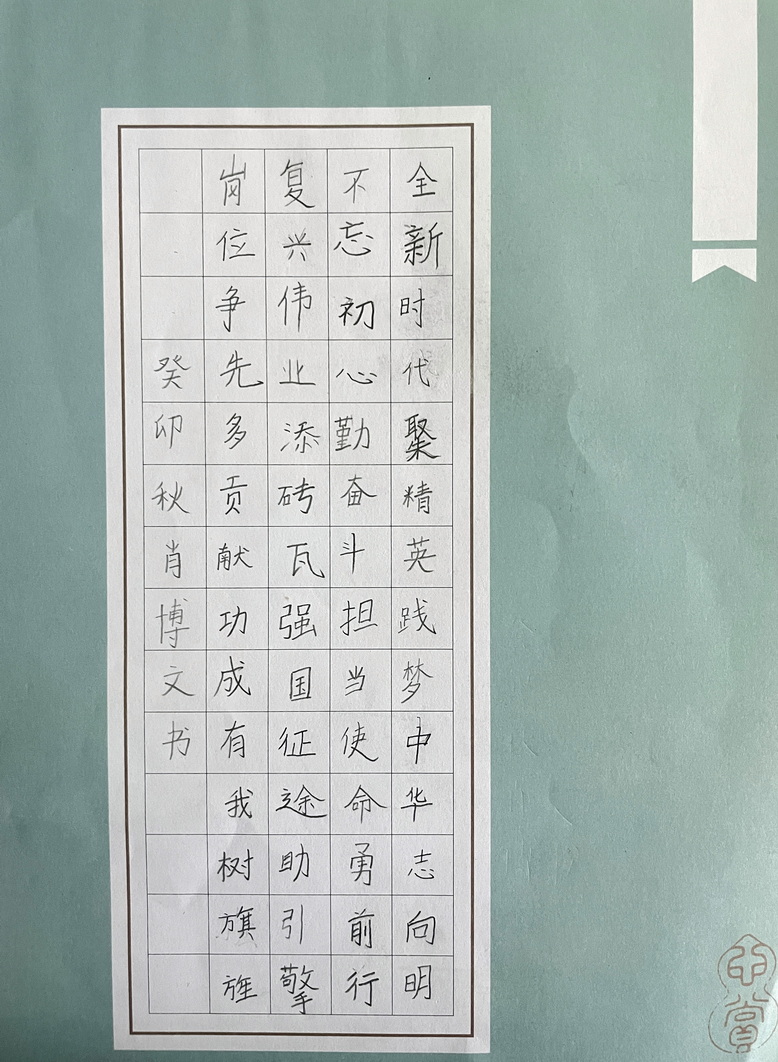 全新时代聚精英践梦中华志向明
不忘初心勤奋斗担当使命勇前行
复兴伟业添砖瓦强国征途助引擎
岗位争先多贡献功成有我树旗旌
癸卯秋肖博文书